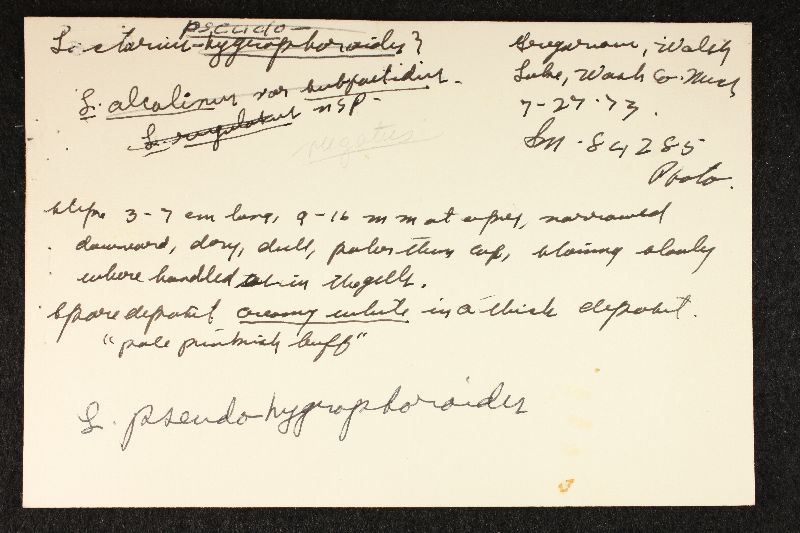 pseudo-
Lactarius-hygrophoroides?
L. alcalinus var subfoetidus.
L. nsp-
rugatus
Gregarious, Walsh
Lake, Wash Co. Mich
7-27-73.
Sm-84285
Photo.
stipe 3-7 cm long, 9-16 mm at apex, narrowed
downward, dry, dull, paler than cap, staining slowly
where handled as in the gills.
Spore deposit creamy white in a thick deposit.
"pale pinkish buff"
L. pseudo-hygrophoroides